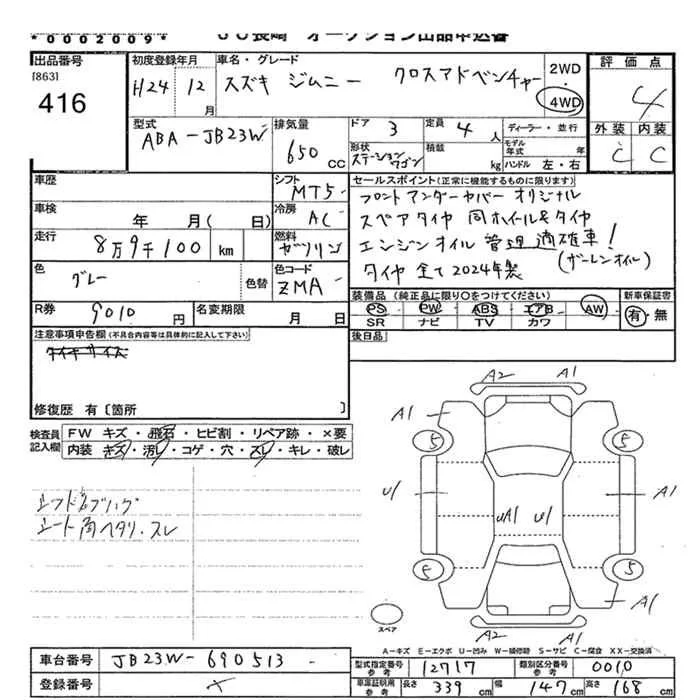 *0002009*
JU長崎 オークション出品申込書
出品番号
[863]
416
初度登録年月
H24 12月
車名・グレード
スズキ ジムニー クロスアドベンチャー
2WD
4WD
評価点
4
型式
ABA-JB23W
排気量
650cc
ドア 3
定員 4人
ディーラー・並行
形状 ステーションワゴン
積載 kg
モデル年式 年
ハンドル 左・右
外装 内装
C C
車歴
シフト MT5
セールスポイント(正常に機能するものに限ります)
フロントアンダーカバー オリジナル
スペアタイヤ 同ホイール&タイヤ
エンジンオイル管理適確車!
(ガーレンオイル)
タイヤ全て2024年製
車検 年 月( 日)
冷房 AC
走行 8万9千100km
燃料 ガソリン
色 グレー
色替
色コード ZMA
R券 9010円
名変期限 月 日
装備品(純正品に限り○をつけてください)
PS PW ABS エアB AW
SR ナビ TV カワ
新車保証書
有・無
注意事項申告欄(不具合内容等は具体的に記入して下さい)
後日品
修復歴 有〔箇所 〕
検査員記入欄
FW キズ・飛石・ヒビ割・リペア跡・×要
内装 キズ・汚レ・コゲ・穴・スレ・キレ・破レ
シート角ヘタリ・スレ
A2 A1
A1
5 5
U1 UA1 U1 A1
5 5
A1
A2 A1
スペア
A-キズ E-エクボ U-凹み W-補修跡 S-サビ C-腐食 XX-交換済
車台番号 JB23W-690513
登録番号
型式指定番号 参考 12717
類別区分番号 参考 0010
車庫証明用 参考 長さ 339cm 幅 147cm 高さ 168cm